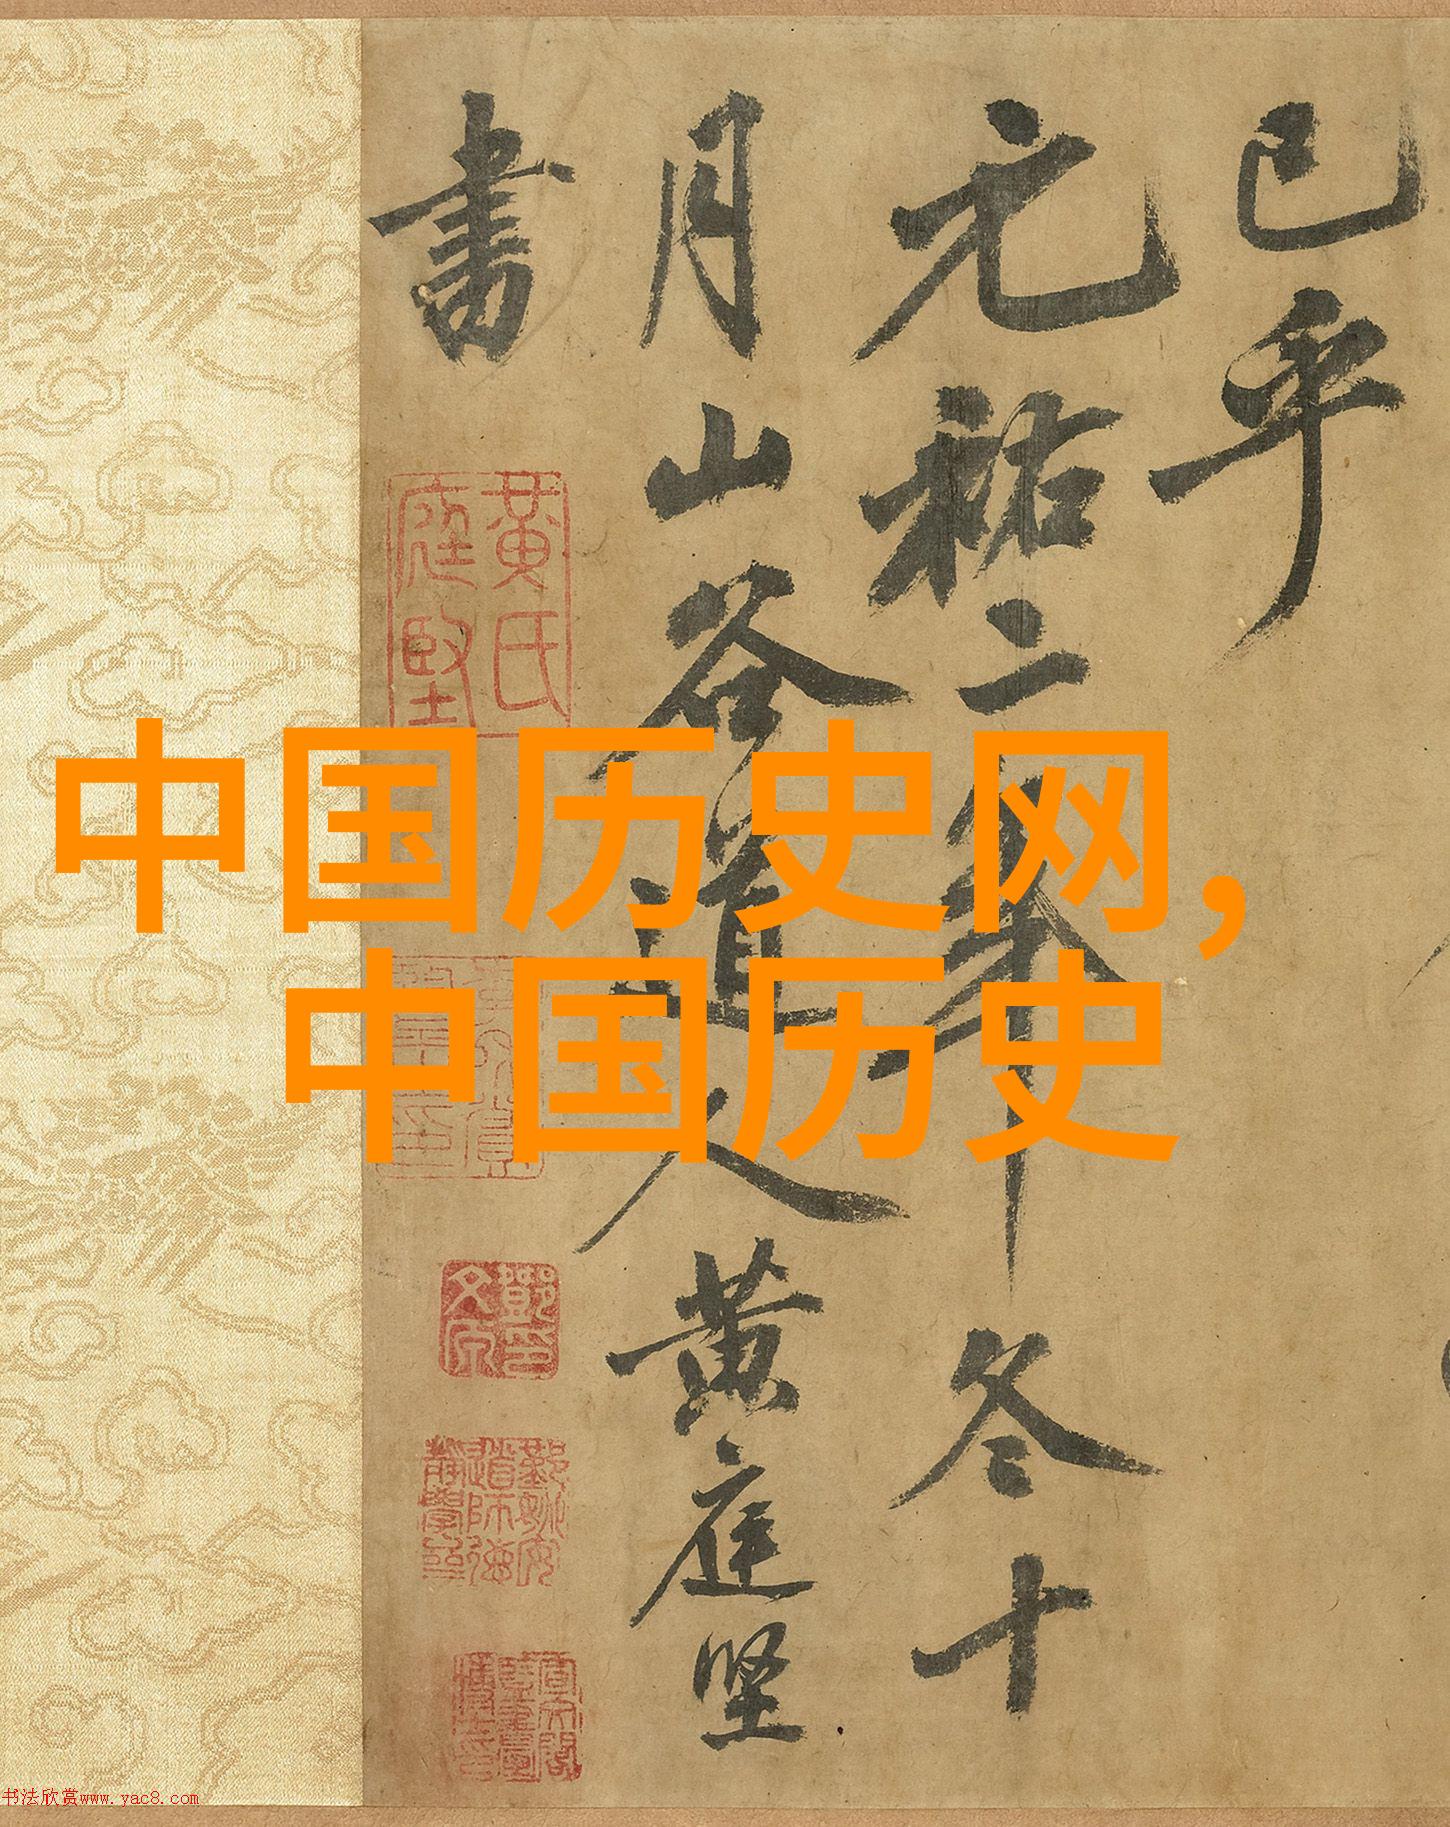 已乎
元祐二年冬十
月山谷道人黄庭坚
書
黄氏
庭堅
中国历史网,
中国历史
书法欣赏www.yac8.com